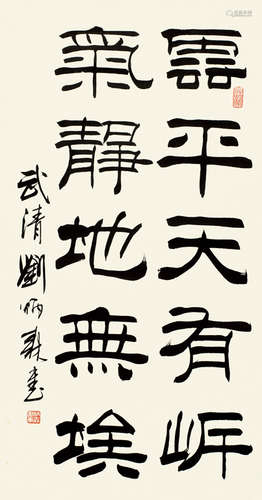 雲平天有岸
氣靜地無埃
武清劉炳森書